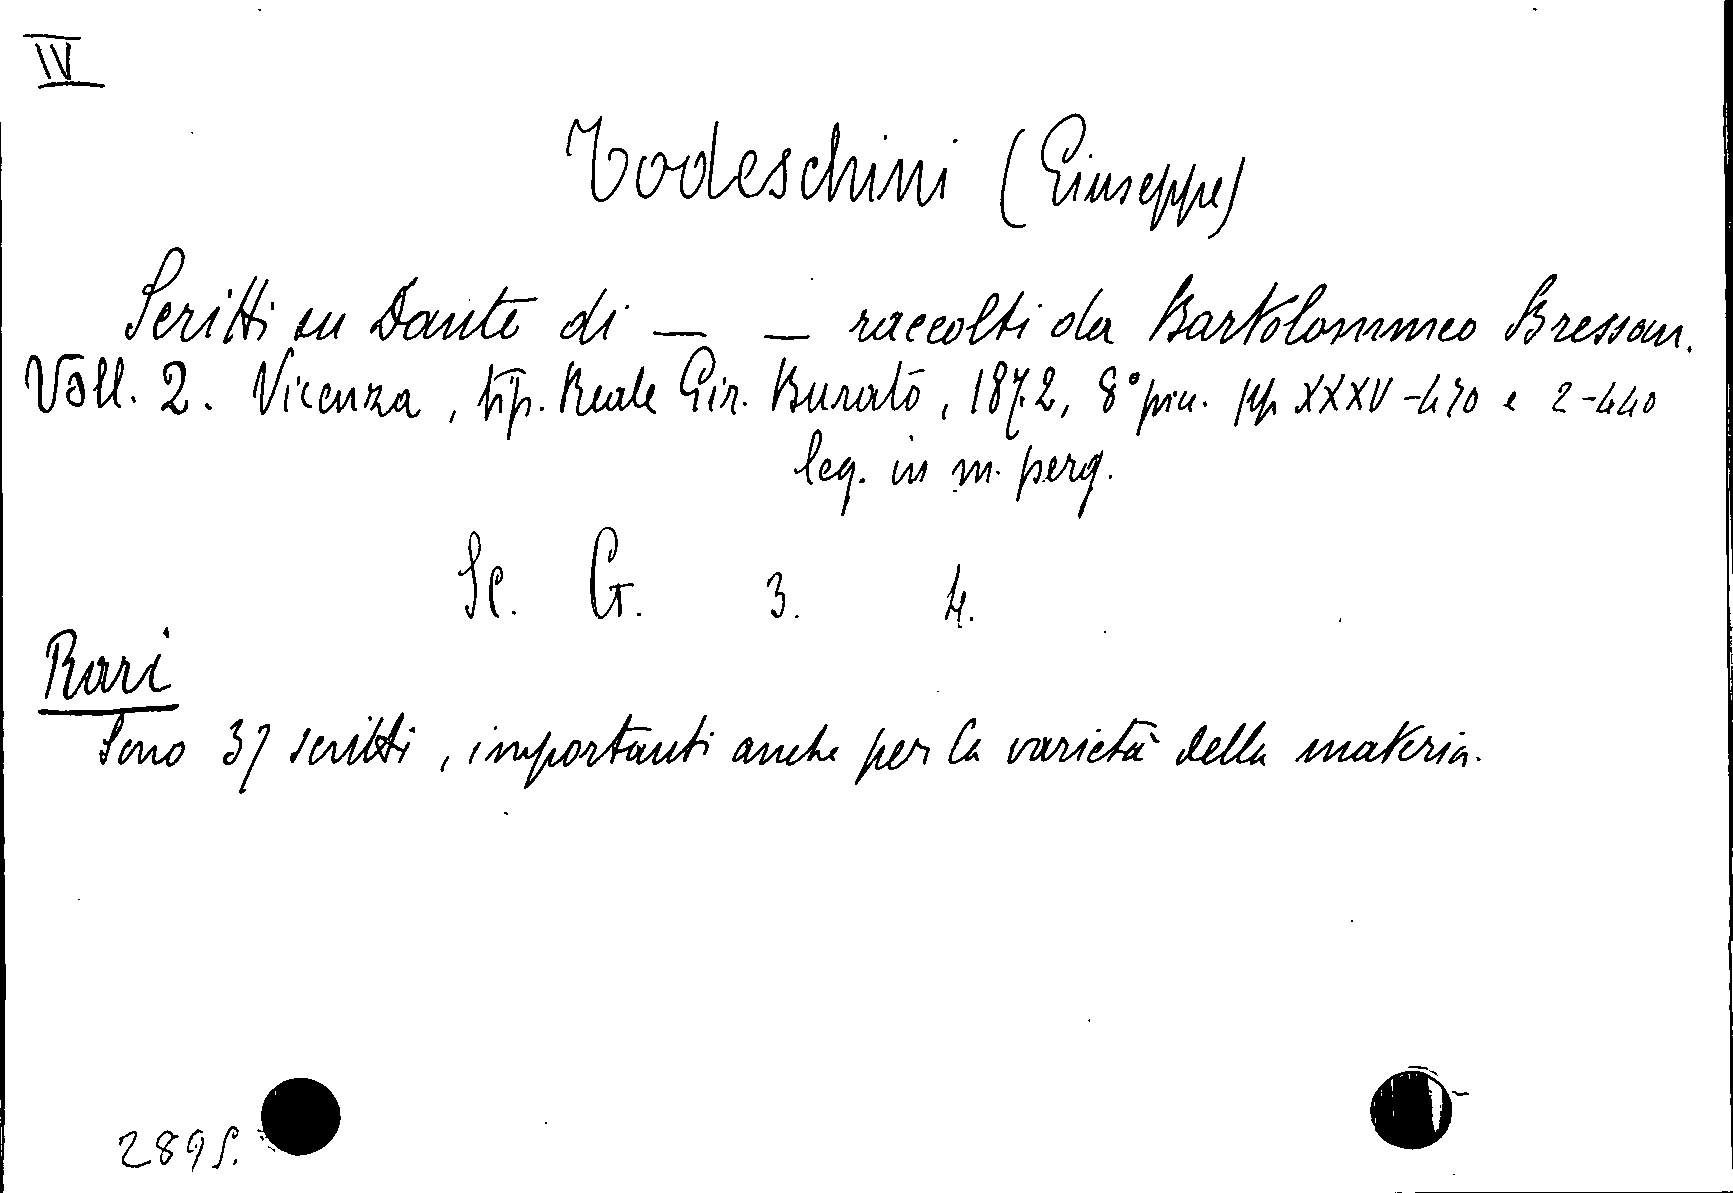 IV
Todeschini (Giuseppe)
Scritti su Dante di — — raccolti da Bartolommeo Bressan.
Voll. 2. Vicenza, tip. Reale Gir. Burato, 1872, 8° picc. pp XXXV-470 e 2-440
leg. in m. perg.
Sc. G. 3. 4.
Rari
Sono 37 scritti, importanti anche per la varietà della materia.
2895.